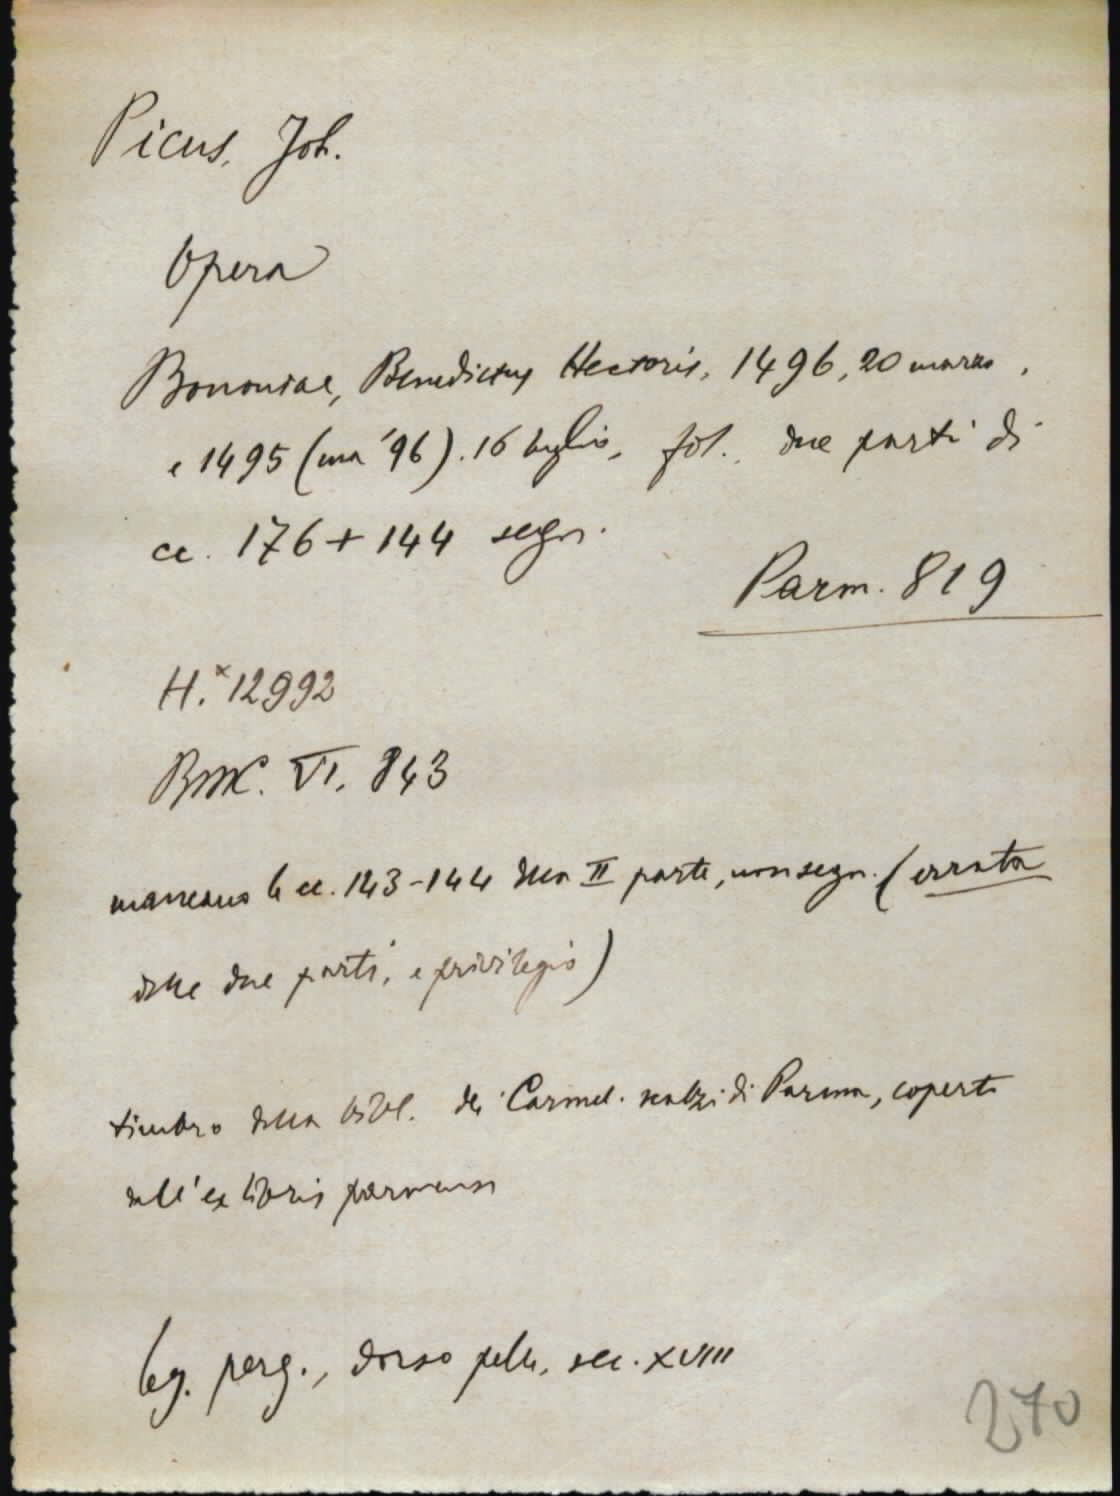 Picus, Joh.
Opera
Bononiae, Benedictus Hectoris, 1496, 20 marzo,
e 1495 (ma '96). 16 luglio, fol., due parti di
cc. 176 + 144 segn.
Parm. 819
H.* 12992
BMC. VI. 843
mancano le cc. 143-144 della II parte, non segn. (errata
delle due parti, e privilegio)
timbro della bibl. dei Carmel. scalzi di Parma, coperto
dall'ex libris parmense
leg. perg., dorso pelle, sec. XVIII
270